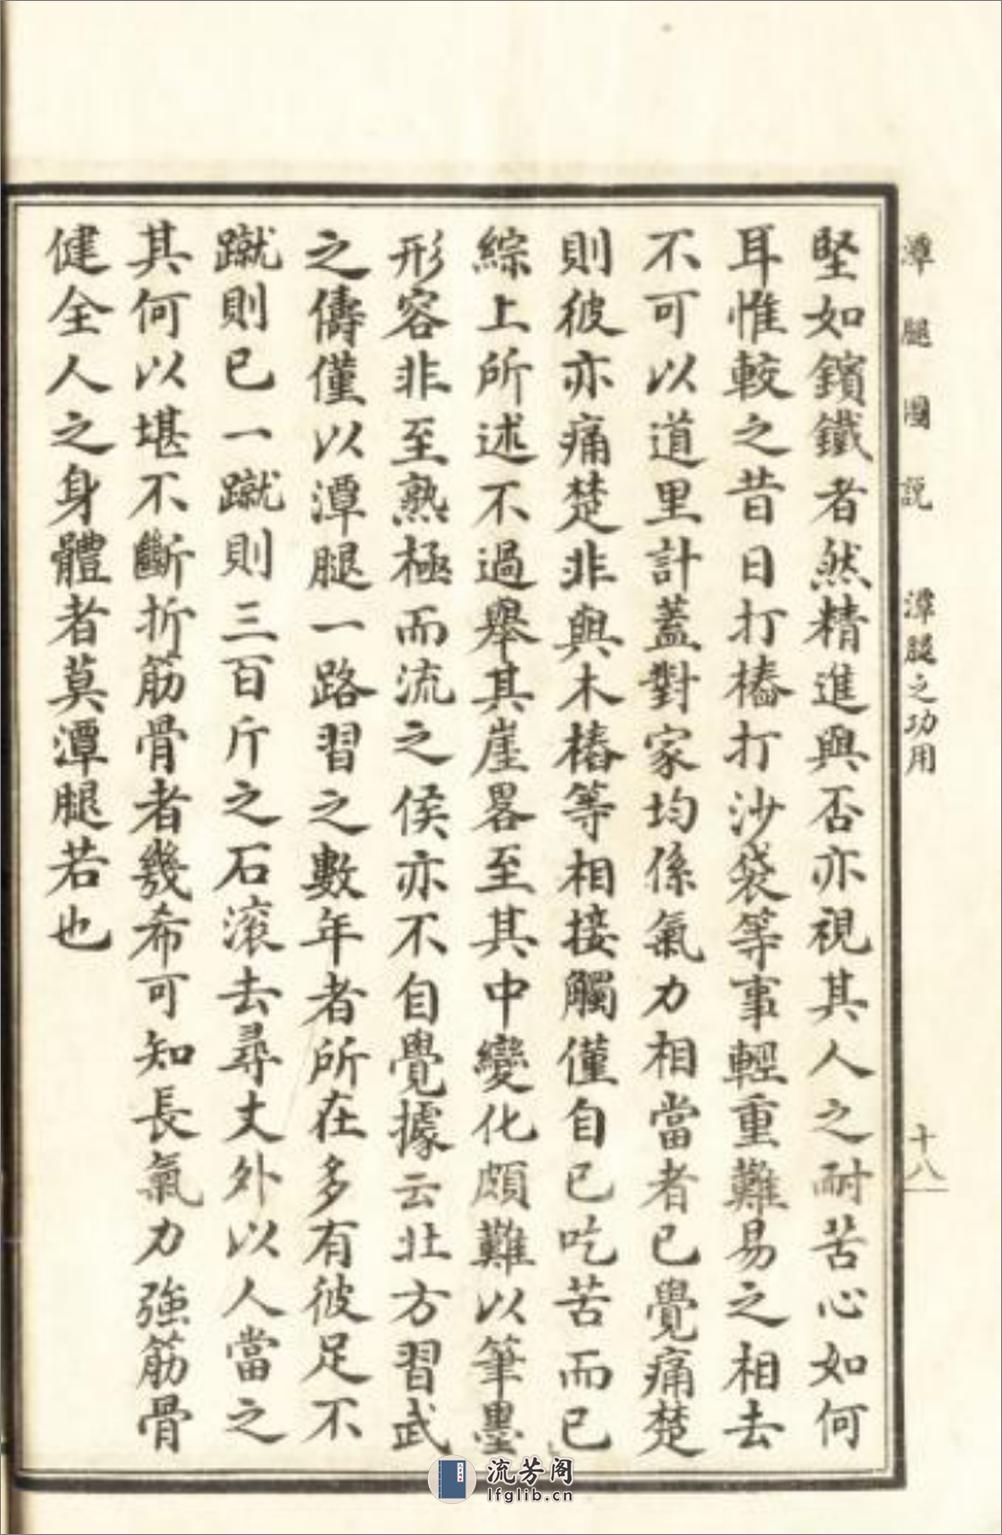 潭腿圖說　潭腿之功用　十八
堅如鑌鐵者然精進與否亦視其人之耐苦心如何
耳惟較之昔日打樁打沙袋等事輕重難易之相去
不可以道里計蓋對家均係氣力相當者已覺痛楚
則彼亦痛楚非與木樁等相接觸僅自已吃苦而已
綜上所述不過舉其崖畧至其中變化頗難以筆墨
形容非至熟極而流之侯亦不自覺據云北方習武
之儔僅以潭腿一路習之數年者所在多有彼足不
蹴則已一蹴則三百斤之石滚去尋丈外以人當之
其何以堪不斷折筋骨者幾希可知長氣力強筋骨
健全人之身體者莫潭腿若也
流芳阁
lfglib.cn